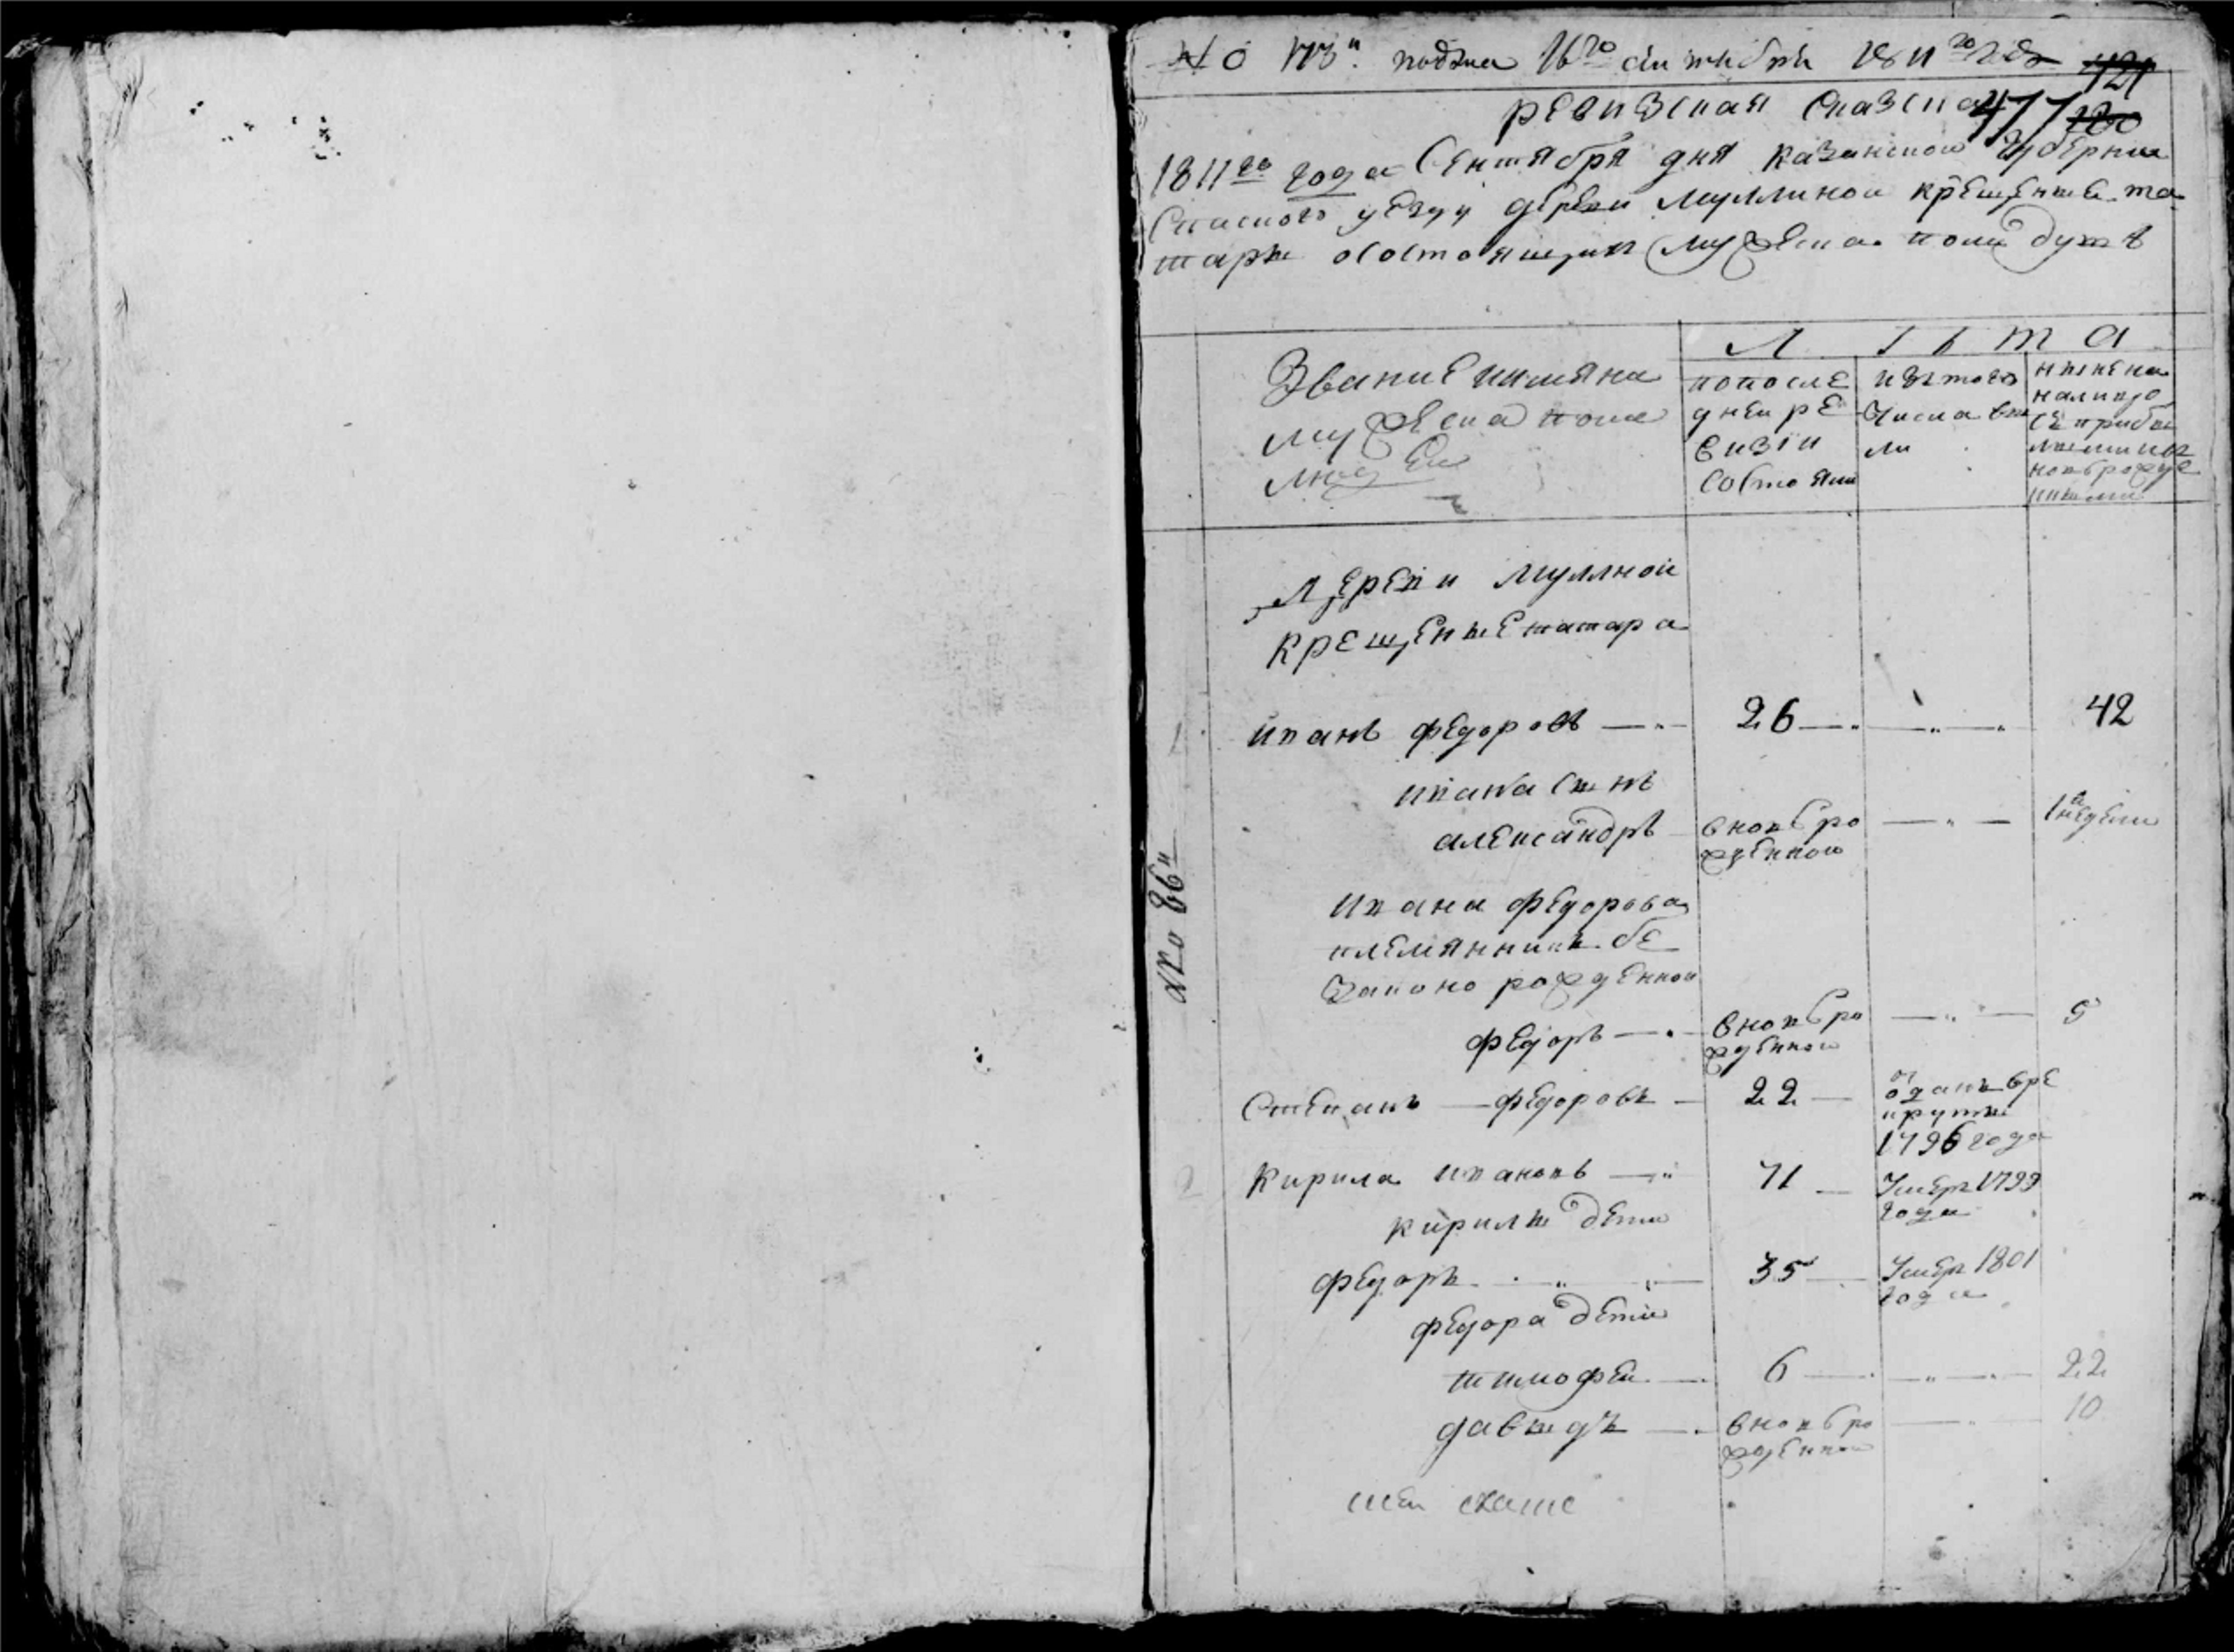 подана 16го сентября 1811го года 421
ревизская сказка 477 220
1811го года Сентября дня казанской губернии
Спаского уезду деревни муллиной крещеныхъ та
таръ осостоящихъ мужеска полу душъ
Л Ѣ т а
Звание имяна
мужеска пола
людей
попосле
дней ре
визіи
состояли
изътого
числа вы
ли
ныне на
лицо
съ прибы
лыми из
новорожде
нными
Деревни Муллной
крещеные татара
1 иванъ федоровъ 26 42
ивана сынъ
александръ вновь ро 1 недели
жденной
No 86й
ивана федорова
племянникъ бе
законо рожденной
федоръ вновь ро 5
жденной
Степанъ федоровъ 22 отданъ вре
круты
1796 года
2 Кирила ивановъ 71 Умеръ 1799
года
кирилы дети
федоръ 35 Умеръ 1801
года
федора дети
тимофей 6 22
давыдъ вновь ро 10
жденной